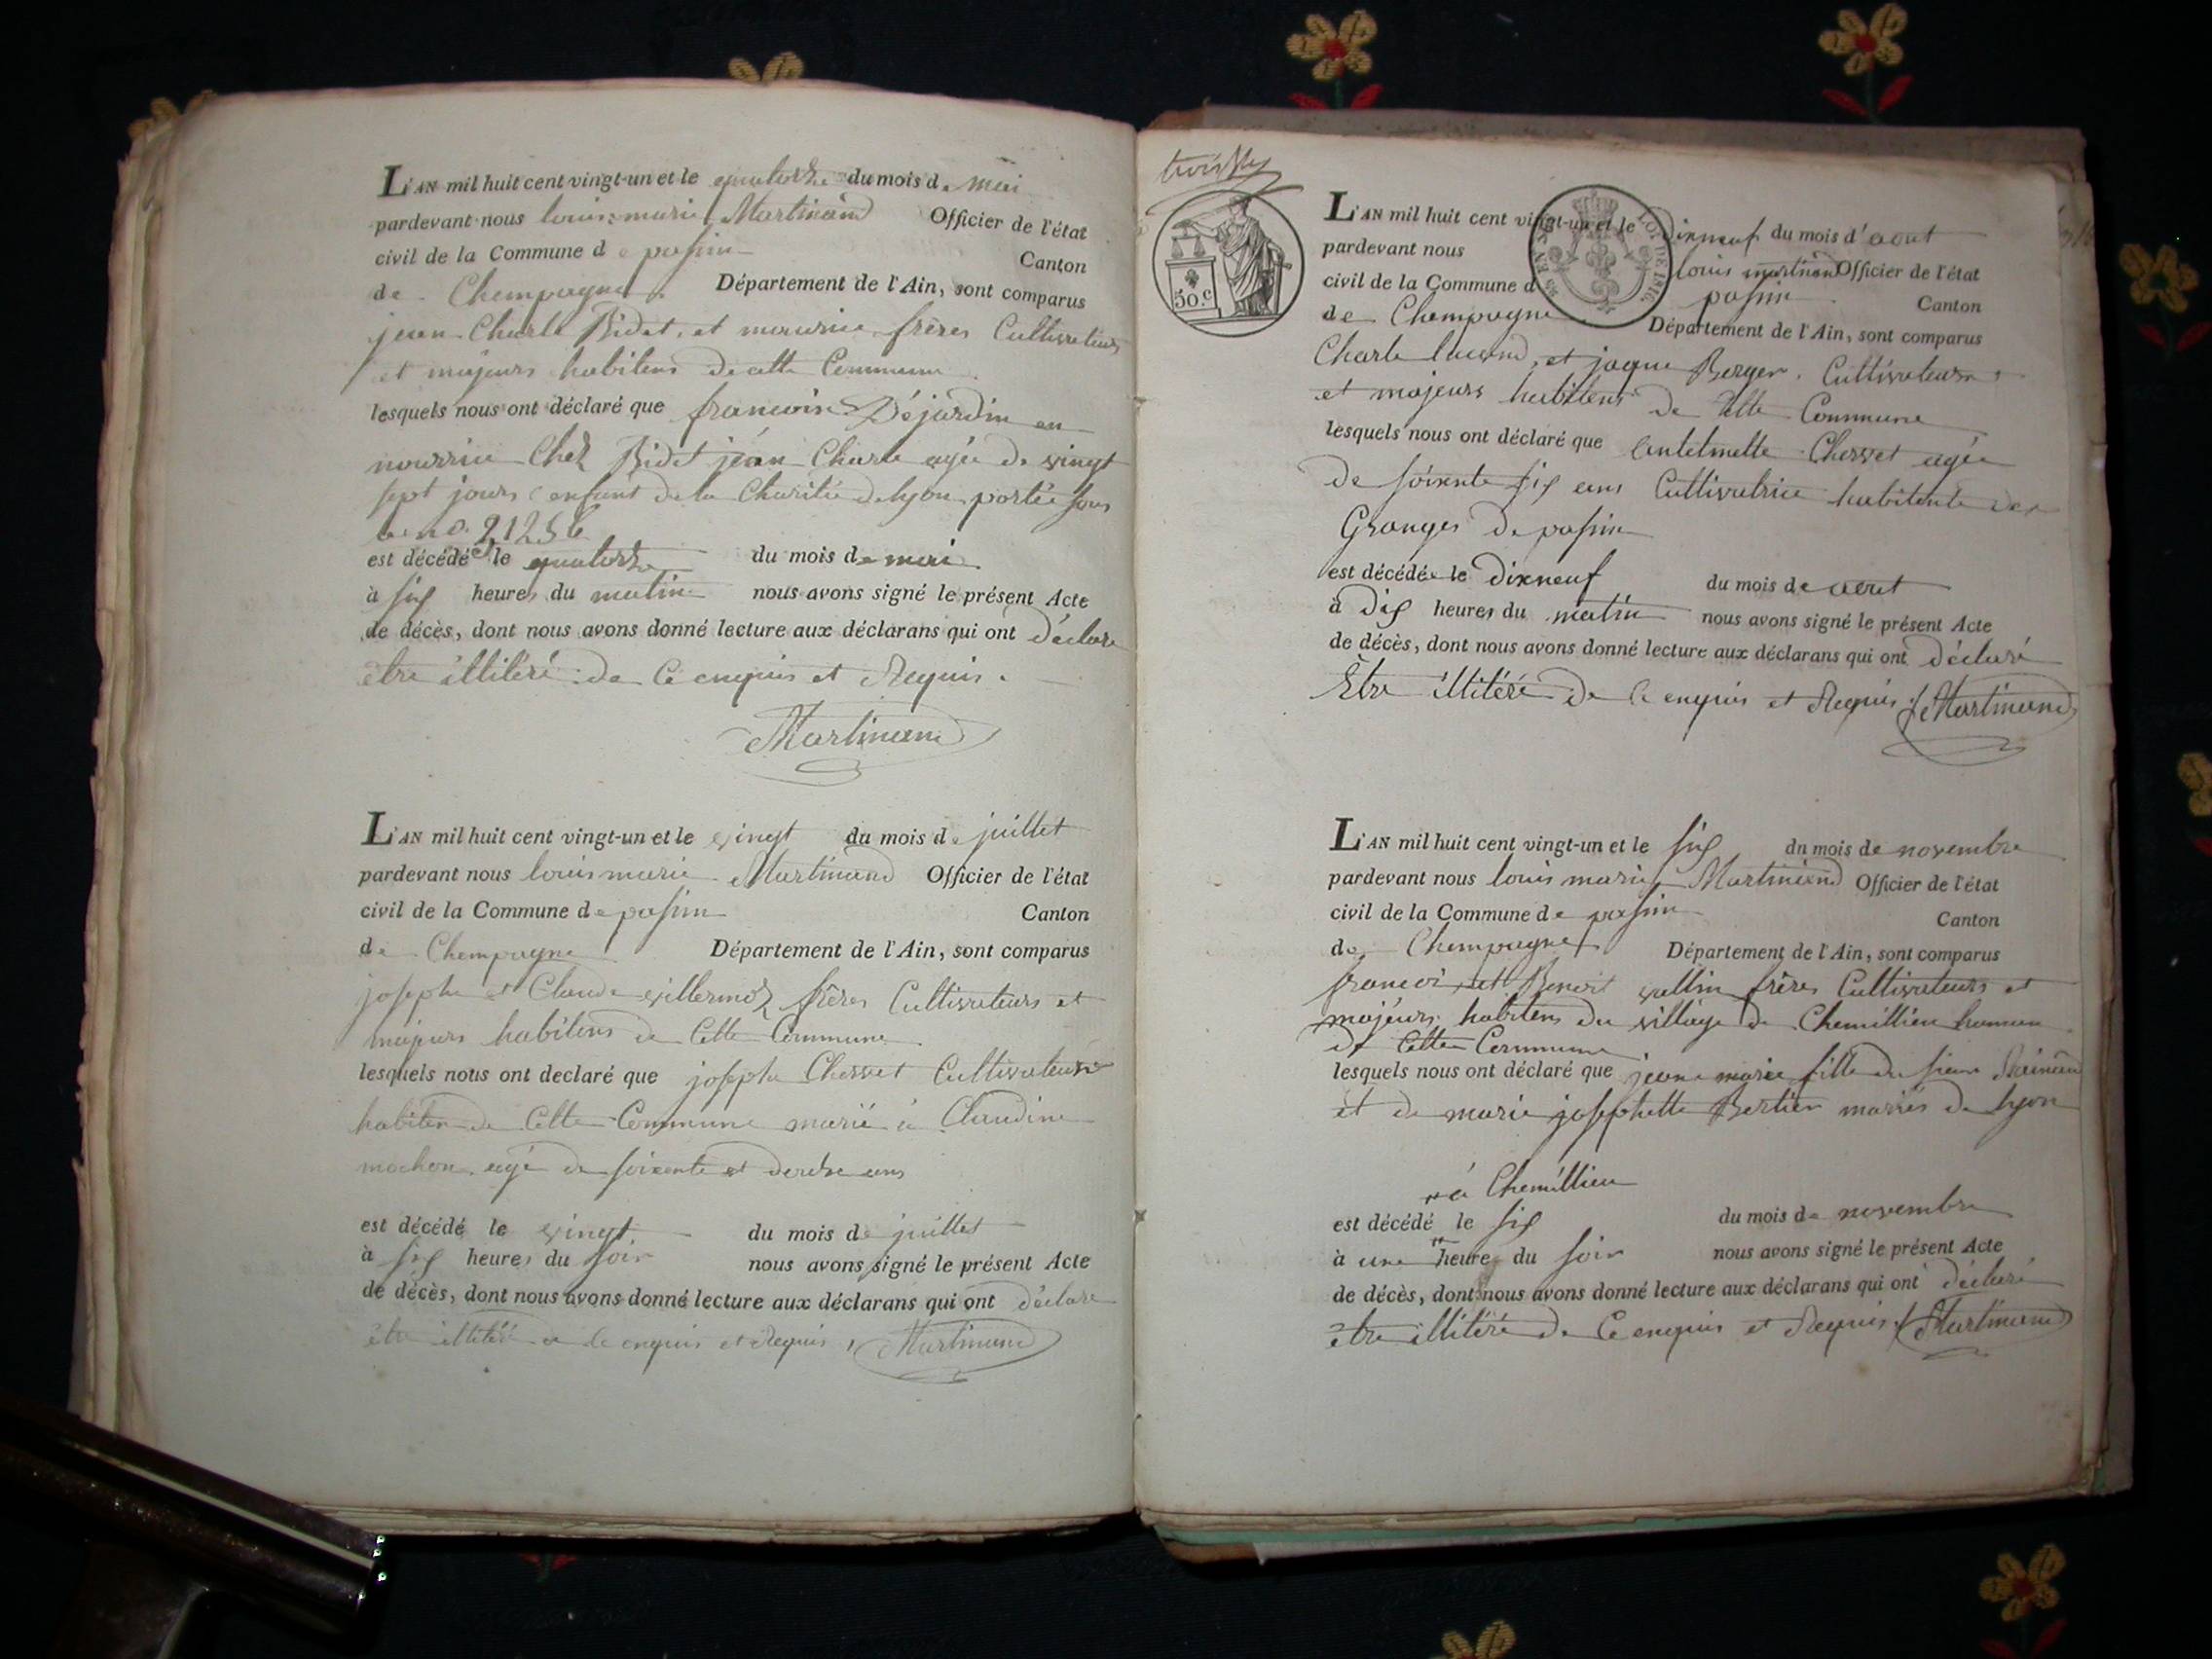 L'AN mil huit cent vingt-un et le quatorze du mois de mai
pardevant nous louis marie Martinand Officier de l'état
civil de la Commune de passin Canton
de Champagne Département de l'Ain, sont comparus
jean Charle Bidet, et maurice frères Cultivateurs
et majeurs habitens de cette Commune
lesquels nous ont déclaré que francois Déjardin en
nourrice Chez Bidet jean Charle agée de vingt
sept jours enfant de la Charitée de lyon portée sous
le no. 21256
est décédé le quatorze du mois de mai
à six heures du matin nous avons signé le présent Acte
de décès, dont nous avons donné lecture aux déclarans qui ont déclare
être illitéré de Ce enquis et Requis.
Martinand
L'AN mil huit cent vingt-un et le vingt du mois de juillet
pardevant nous louis marie Martinand Officier de l'état
civil de la Commune de passin Canton
de Champagne Département de l'Ain, sont comparus
josephe et Claude villermoz frères Cultivateurs et
majeurs habitens de Cette Commune
lesquels nous ont declaré que josephe Chesset Cultivateur
habiten de Cette Commune marié à Claudine
mochon agé de soixente et ans
est décédé le vingt du mois de juillet
à six heures du soir nous avons signé le présent Acte
de décès, dont nous avons donné lecture aux déclarans qui ont déclare
être illitéré de Ce enquis et Requis, Martinand
50.c
LOI DE 1816.
L'AN mil huit cent vingt-un et le dixneuf du mois d'aout
pardevant nous louis martinand Officier de l'état
civil de la Commune d passin Canton
de Champagne Département de l'Ain, sont comparus
Charle et jaque Berger. Cultivateurs
et majeurs habitens de Cette Commune
lesquels nous ont déclaré que antelmette Chesset agée
de soixente six ans Cultivatrice habitente des
Granges de passin
est décédée le dixneuf du mois de aout
à dix heures du matin nous avons signé le présent Acte
de décès, dont nous avons donné lecture aux déclarans qui ont déclaré
Être illitéré de Ce enquis et Requis. Martinand
L'AN mil huit cent vingt-un et le six du mois de novembre
pardevant nous louis marie Martinand Officier de l'état
civil de la Commune de passin Canton
de Champagne Département de l'Ain, sont comparus
francoi et Benoit vallin frères Cultivateurs et
majeurs habitens du village de Chemillieu hameau
de Cette Commune
lesquels nous ont déclaré que jeane marie fille du sieur
et de marie josephette Bertier mariés de lyon
à Chemillieu
est décédé le six du mois de novembre
à une heure du soir nous avons signé le présent Acte
de décès, dont nous avons donné lecture aux déclarans qui ont déclaré
être illitéré de Ce enquis et Requis Martinand